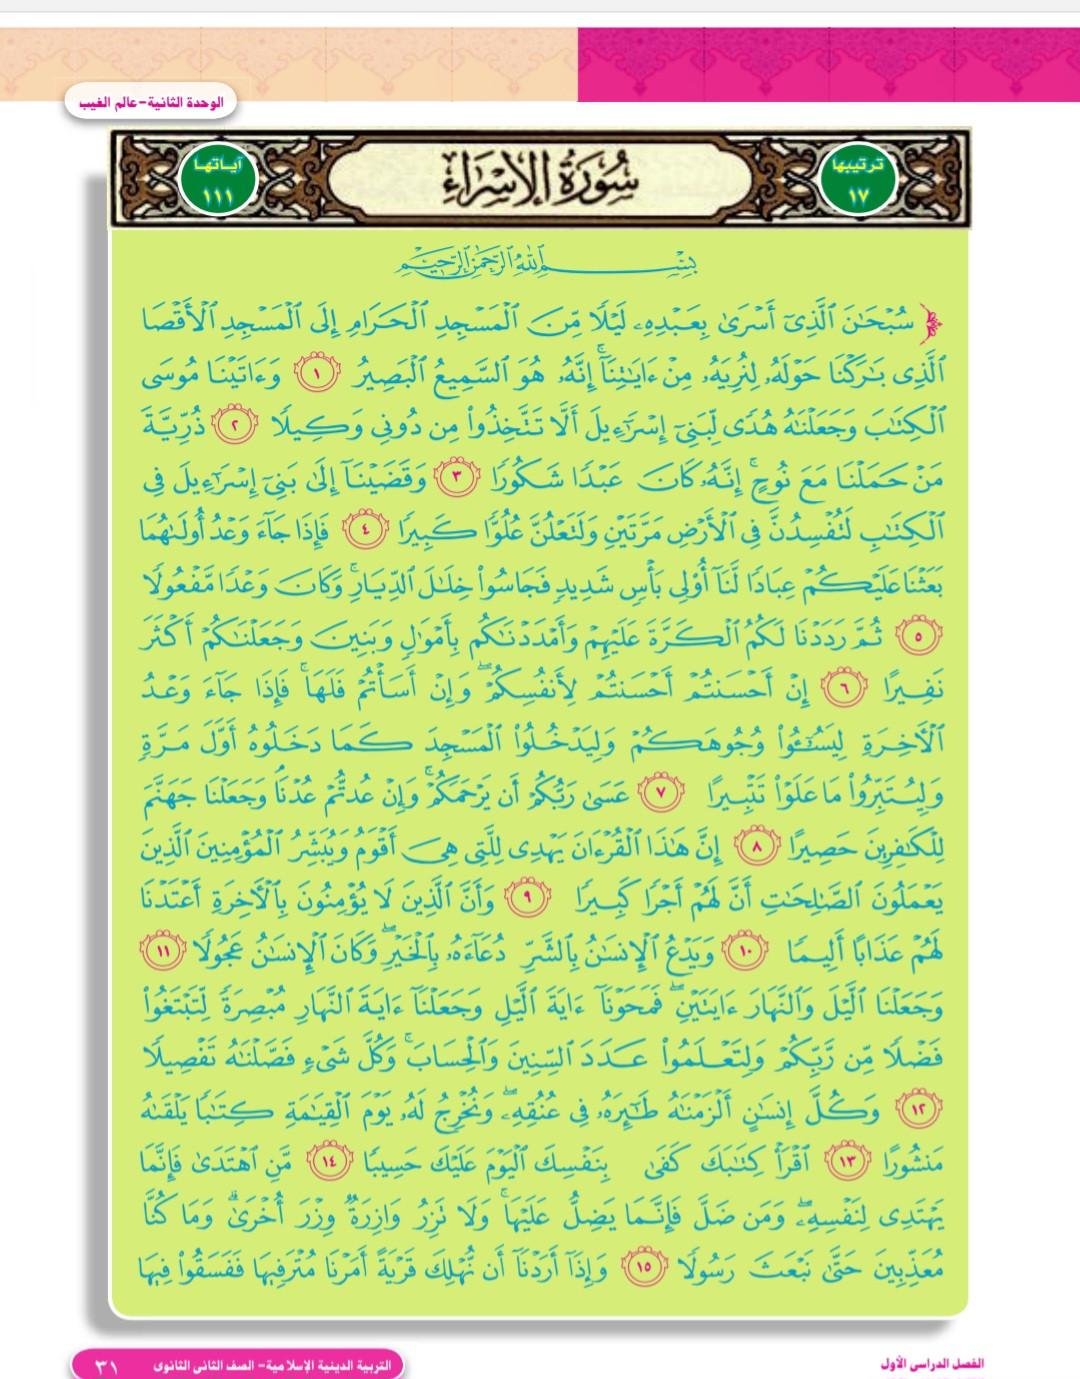 الوحدة الثانية-عالم الغيب
ترتيبها ١٧
سُورَةُ الإِسْرَاءِ
آياتها ١١١
بِسْمِ اللَّهِ الرَّحْمَٰنِ الرَّحِيمِ
﴿ سُبْحَٰنَ ٱلَّذِىٓ أَسْرَىٰ بِعَبْدِهِۦ لَيْلًا مِّنَ ٱلْمَسْجِدِ ٱلْحَرَامِ إِلَى ٱلْمَسْجِدِ ٱلْأَقْصَا
ٱلَّذِى بَٰرَكْنَا حَوْلَهُۥ لِنُرِيَهُۥ مِنْ ءَايَٰتِنَآ ۚ إِنَّهُۥ هُوَ ٱلسَّمِيعُ ٱلْبَصِيرُ ١ وَءَاتَيْنَا مُوسَى
ٱلْكِتَٰبَ وَجَعَلْنَٰهُ هُدًى لِّبَنِىٓ إِسْرَٰٓءِيلَ أَلَّا تَتَّخِذُوا۟ مِن دُونِى وَكِيلًا ٢ ذُرِّيَّةَ
مَنْ حَمَلْنَا مَعَ نُوحٍ ۚ إِنَّهُۥ كَانَ عَبْدًا شَكُورًا ٣ وَقَضَيْنَآ إِلَىٰ بَنِىٓ إِسْرَٰٓءِيلَ فِى
ٱلْكِتَٰبِ لَتُفْسِدُنَّ فِى ٱلْأَرْضِ مَرَّتَيْنِ وَلَتَعْلُنَّ عُلُوًّا كَبِيرًا ٤ فَإِذَا جَآءَ وَعْدُ أُولَىٰهُمَا
بَعَثْنَا عَلَيْكُمْ عِبَادًا لَّنَآ أُو۟لِى بَأْسٍ شَدِيدٍ فَجَاسُوا۟ خِلَٰلَ ٱلدِّيَارِ ۚ وَكَانَ وَعْدًا مَّفْعُولًا
٥ ثُمَّ رَدَدْنَا لَكُمُ ٱلْكَرَّةَ عَلَيْهِمْ وَأَمْدَدْنَٰكُم بِأَمْوَٰلٍ وَبَنِينَ وَجَعَلْنَٰكُمْ أَكْثَرَ
نَفِيرًا ٦ إِنْ أَحْسَنتُمْ أَحْسَنتُمْ لِأَنفُسِكُمْ ۖ وَإِنْ أَسَأْتُمْ فَلَهَا ۚ فَإِذَا جَآءَ وَعْدُ
ٱلْأَخِرَةِ لِيَسُـۥٓـُٔوا۟ وُجُوهَكُمْ وَلِيَدْخُلُوا۟ ٱلْمَسْجِدَ كَمَا دَخَلُوهُ أَوَّلَ مَرَّةٍ
وَلِيُتَبِّرُوا۟ مَا عَلَوْا۟ تَتْبِيرًا ٧ عَسَىٰ رَبُّكُمْ أَن يَرْحَمَكُمْ ۚ وَإِنْ عُدتُّمْ عُدْنَا ۘ وَجَعَلْنَا جَهَنَّمَ
لِلْكَٰفِرِينَ حَصِيرًا ٨ إِنَّ هَٰذَا ٱلْقُرْءَانَ يَهْدِى لِلَّتِى هِىَ أَقْوَمُ وَيُبَشِّرُ ٱلْمُؤْمِنِينَ ٱلَّذِينَ
يَعْمَلُونَ ٱلصَّٰلِحَٰتِ أَنَّ لَهُمْ أَجْرًا كَبِيرًا ٩ وَأَنَّ ٱلَّذِينَ لَا يُؤْمِنُونَ بِٱلْأَخِرَةِ أَعْتَدْنَا
لَهُمْ عَذَابًا أَلِيمًا ١٠ وَيَدْعُ ٱلْإِنسَٰنُ بِٱلشَّرِّ دُعَآءَهُۥ بِٱلْخَيْرِ ۖ وَكَانَ ٱلْإِنسَٰنُ عَجُولًا ١١
وَجَعَلْنَا ٱلَّيْلَ وَٱلنَّهَارَ ءَايَتَيْنِ ۖ فَمَحَوْنَآ ءَايَةَ ٱلَّيْلِ وَجَعَلْنَآ ءَايَةَ ٱلنَّهَارِ مُبْصِرَةً لِّتَبْتَغُوا۟
فَضْلًا مِّن رَّبِّكُمْ وَلِتَعْلَمُوا۟ عَدَدَ ٱلسِّنِينَ وَٱلْحِسَابَ ۚ وَكُلَّ شَىْءٍ فَصَّلْنَٰهُ تَفْصِيلًا
١٢ وَكُلَّ إِنسَٰنٍ أَلْزَمْنَٰهُ طَٰٓئِرَهُۥ فِى عُنُقِهِۦ ۖ وَنُخْرِجُ لَهُۥ يَوْمَ ٱلْقِيَٰمَةِ كِتَٰبًا يَلْقَىٰهُ
مَنشُورًا ١٣ ٱقْرَأْ كِتَٰبَكَ كَفَىٰ بِنَفْسِكَ ٱلْيَوْمَ عَلَيْكَ حَسِيبًا ١٤ مَّنِ ٱهْتَدَىٰ فَإِنَّمَا
يَهْتَدِى لِنَفْسِهِۦ ۖ وَمَن ضَلَّ فَإِنَّمَا يَضِلُّ عَلَيْهَا ۚ وَلَا تَزِرُ وَازِرَةٌ وِزْرَ أُخْرَىٰ ۗ وَمَا كُنَّا
مُعَذِّبِينَ حَتَّىٰ نَبْعَثَ رَسُولًا ١٥ وَإِذَآ أَرَدْنَآ أَن نُّهْلِكَ قَرْيَةً أَمَرْنَا مُتْرَفِيهَا فَفَسَقُوا۟ فِيهَا
الفصل الدراسى الأول
التربية الدينية الإسلامية- الصف الثانى الثانوى ٣١